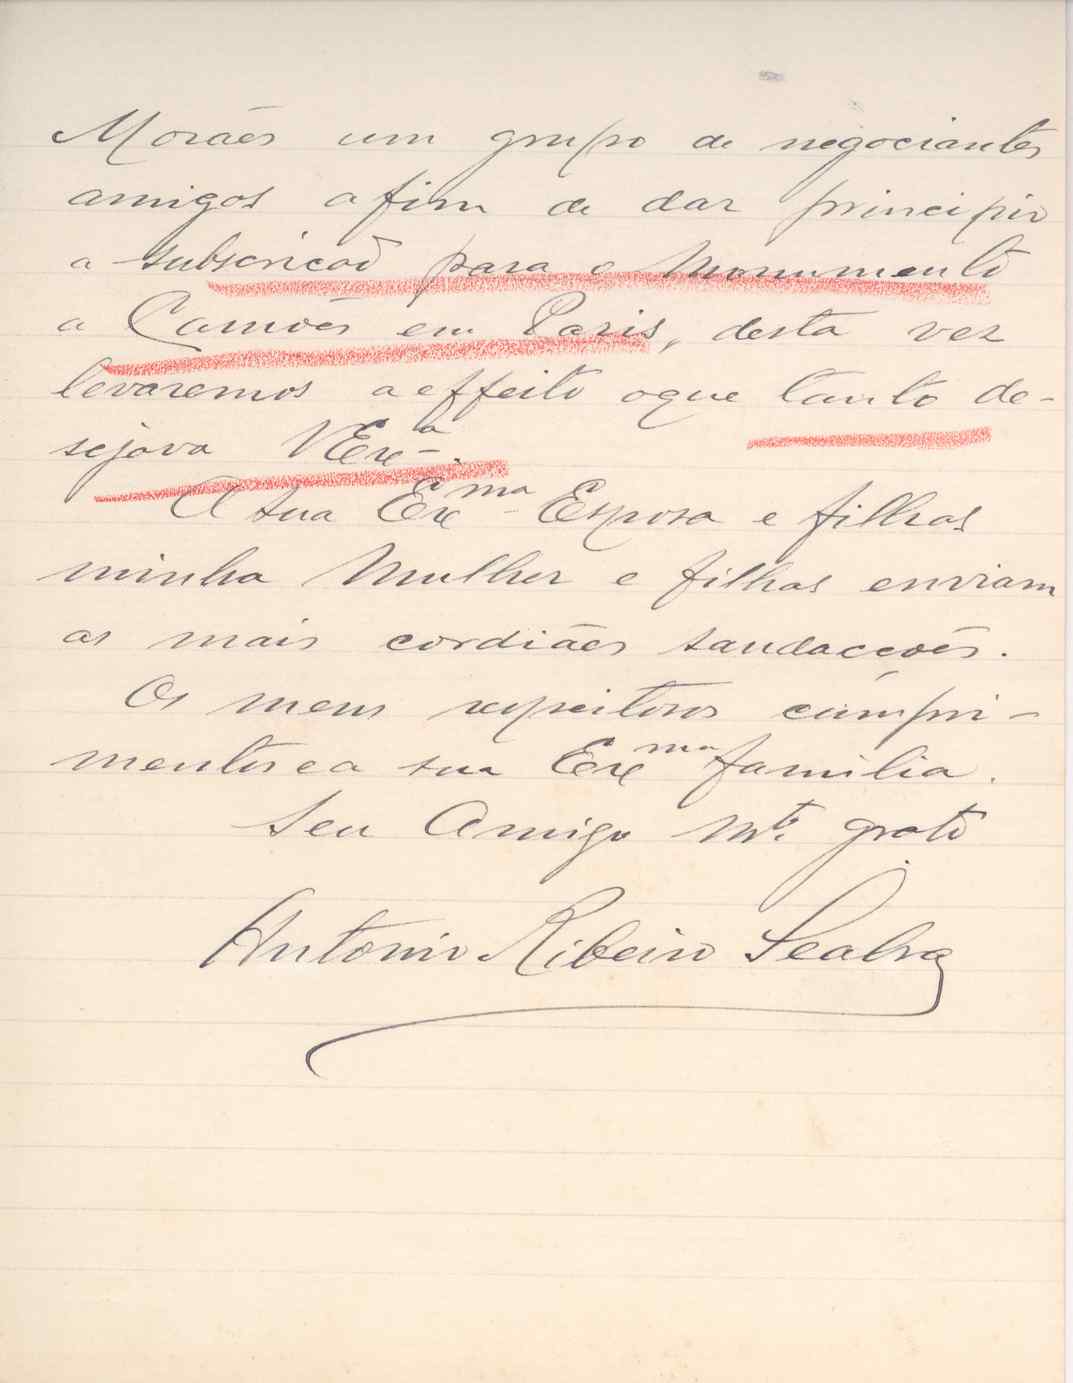 Moràes um grupo de negociantes
amigos afim de dar principio
a subscricaõ para o Monumento
a Camoẽs em Paris, desta vez
levaremos aeffeito oque tanto de-
sejava VExª.
A sua Exma Esposa e filhas
minha Mulher e filhas enviam
as mais cordiães saudaccoẽs.
Os meus respeitosos cumpri-
mentos e a sua Exma familia.
Seu Amigo Mto. grato
Antonio Ribeiro Seabra